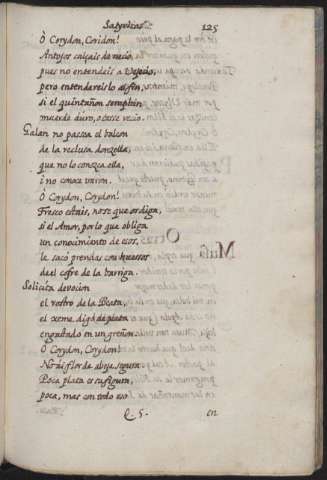 Satyricas. 125
O Corydon, Coridon!
Antojos calçais de necio,
pues no entendeis a Vejecio,
pero entendereis lo al fin,
si el quintañon
muerde duro, o terze recio.
Galan no passea el balcon
de la reclusa donzella,
que no lo conozca ella,
i no conoce varon.
O Corydon, Corydon!
Fresco estais, no se que os diga,
si el Amor, por lo que obliga
un conocimiento de esos,
le sacò prendas con huessos
del cofre de la barriga.
Solicita devocion
el rostro de la Beata,
el xeme, digo, de plata
engastado en un greñon.
O Corydon, Corydon!
No ai flor de abeja segura
Poca plata es su figura,
poca, mas con todo eso
Q 5. en